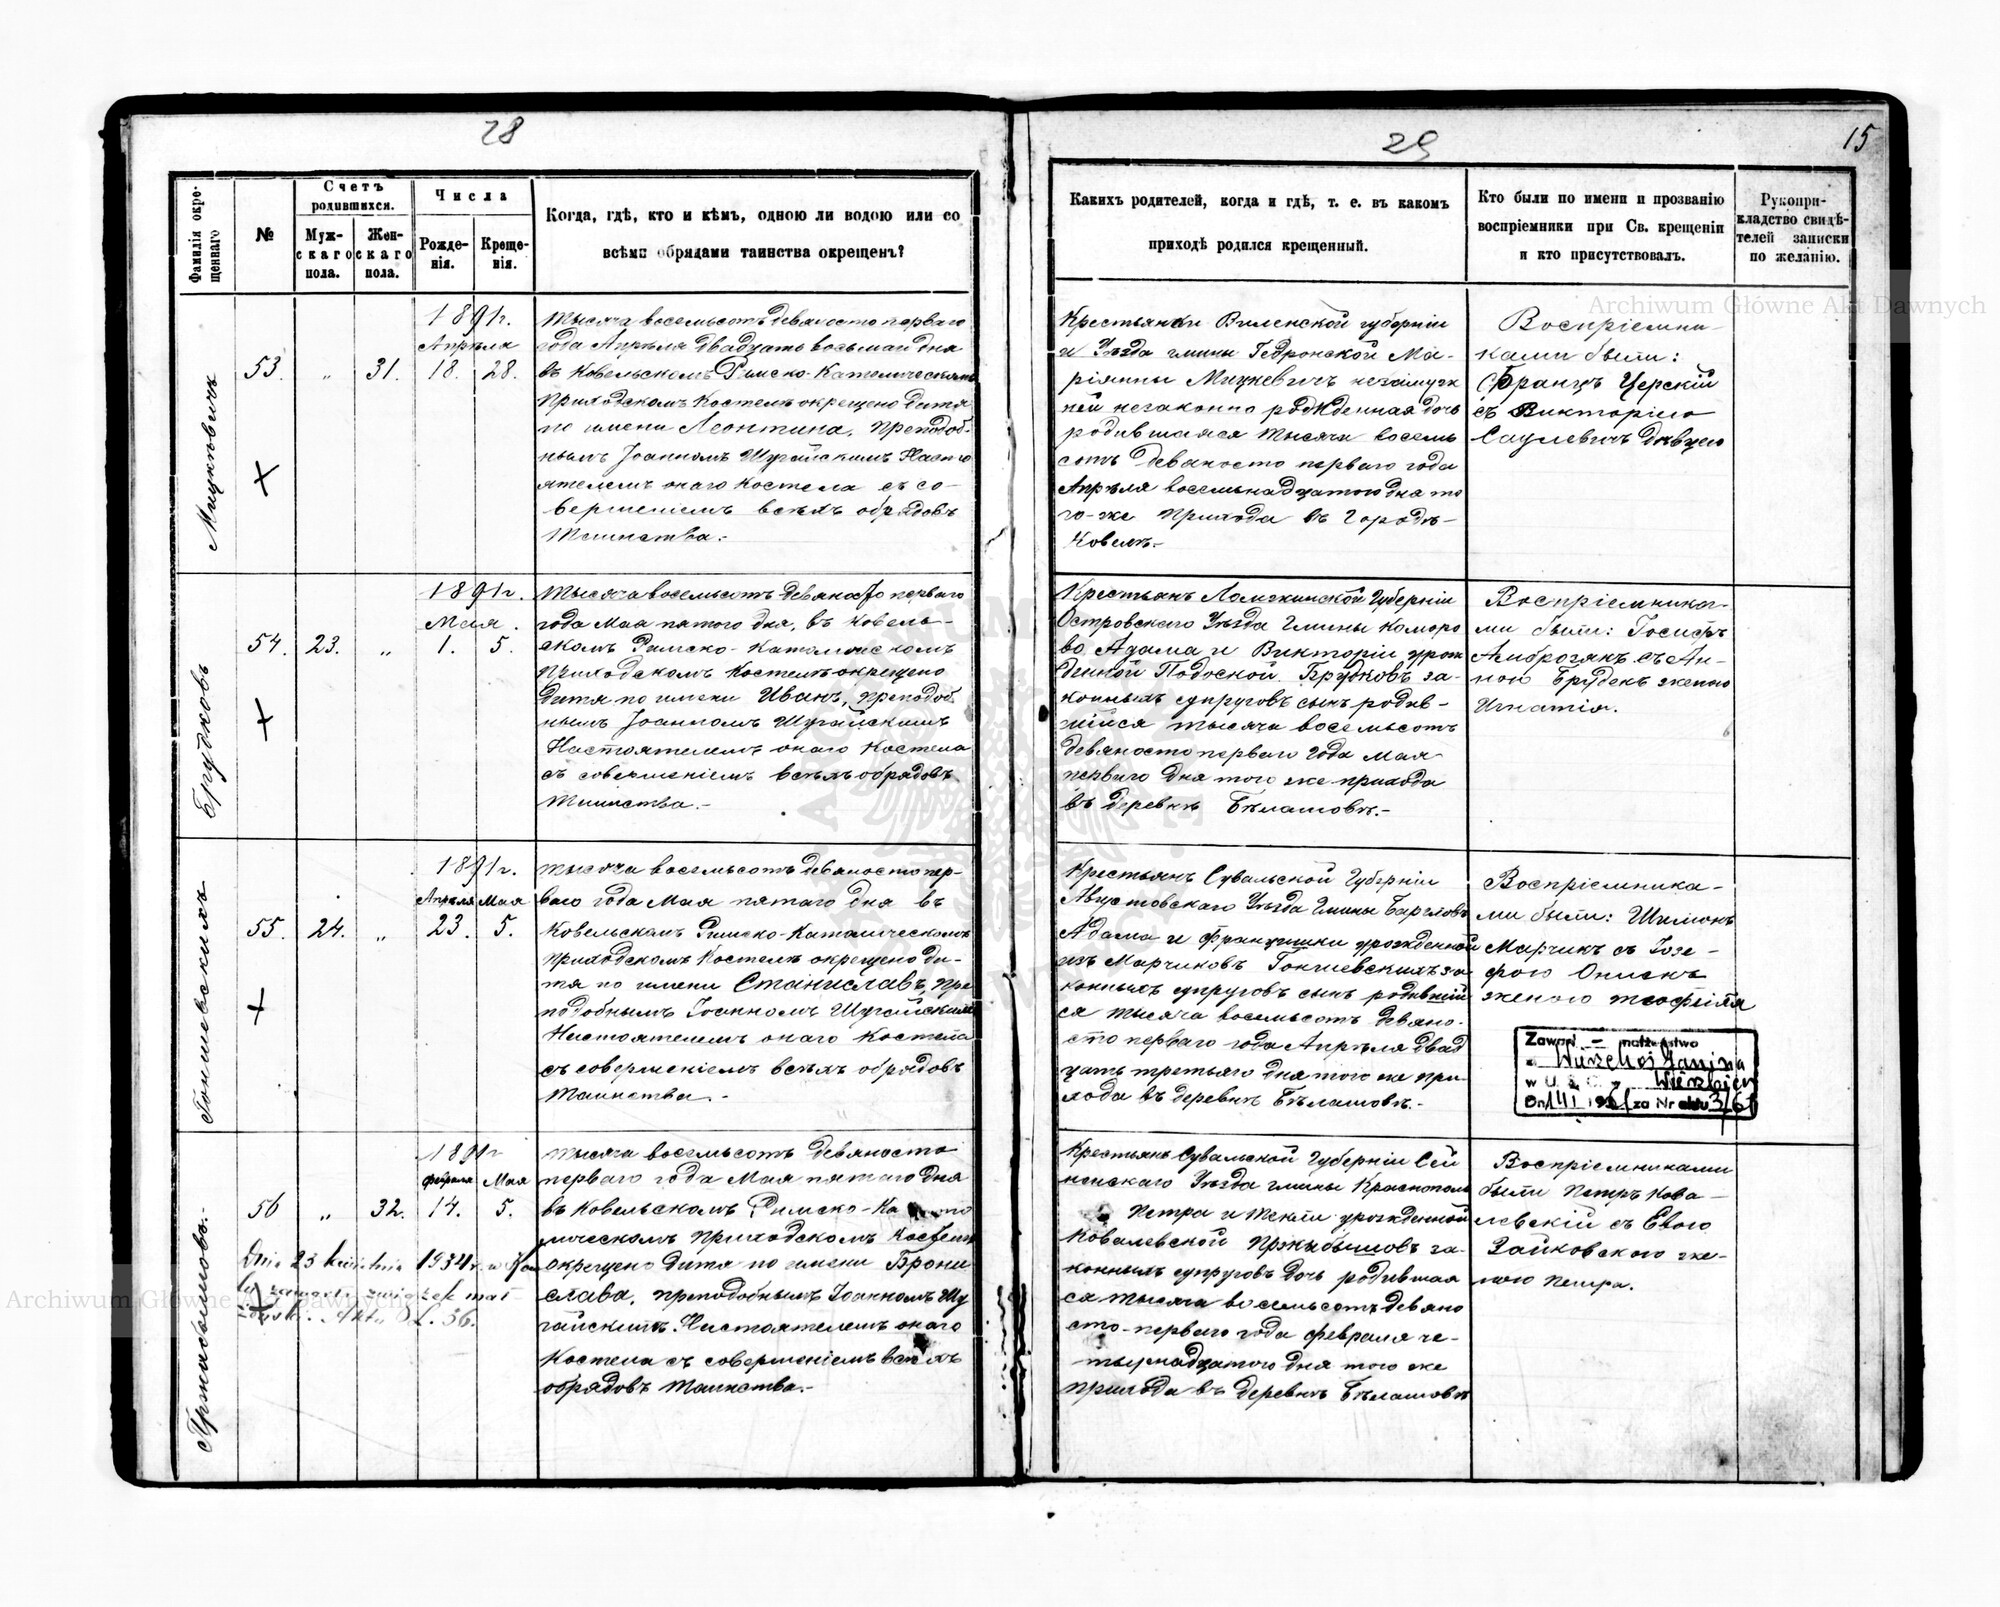 28
29
15
Фамилія окре-
щеннаго
№
Счетъ
родившихся.
Муж-
скаго
пола.
Жен-
скаго
пола.
Числа
Рожде-
нія.
Креще-
нія.
Когда, гдѣ, кто и кѣмъ, одною ли водою или со
всѣми обрядами таинства окрещенъ?
Какихъ родителей, когда и гдѣ, т. е. въ какомъ
приходѣ родился крещенный.
Кто были по имени и прозванію
воспріемники при Св. крещеніи
и кто присутствовалъ.
Рукопри-
кладство свидѣ-
телей записки
по желанію.
Мицкевичъ
53. „ 31.
1891г.
Апрѣля
18. 28.
Тысяча восемьсотъ девяносто перваго
года Апрѣля двадцать восьмаго дня
въ Ковельскомъ Римско-Католическомъ
Приходскомъ Костелѣ окрещено дитя
по имени Леонтина, Преподоб-
нымъ Іоанномъ Шугайскимъ Насто
ятелемъ онаго Костела съ со-
вершеніемъ всѣхъ обрядовъ
Таинства.-
Крестьянки Виленской губерніи
и Уѣзда гмины Гедройской Ма-
ріянны Мицкевичъ незамуж
ней незаконно рожденная дочь
родившаяся тысяча восемь
сотъ девяносто перваго года
Апрѣля восемьнадцатого дня то
го-же Прихода въ Городѣ-
Ковелѣ.-
Воспріемни-
ками были:
Францъ Церскій
съ Викторіею
Саулевичъ дѣвцею
Брудковъ
54. 23. „
1891г.
Мая.
1. 5.
Тысяча восемьсотъ девяносто перваго
года Мая пятого дня, въ Ковель-
скомъ Римско-Католическомъ
Приходскомъ Костелѣ окрещено
дитя по имени Иванъ, Преподоб
нымъ Іоанномъ Шугайскимъ
Настоятелемъ онаго Костела
съ совершеніемъ всѣхъ обрядовъ
Таинства.-
Крестьянъ Ломжинской Губерніи
Островскаго Уѣзда Гмины Коморо
во Адама и Викторіи урож
денной Подоской Брудковъ за-
конныхъ супруговъ сынъ родив-
шійся тысяча восемьсотъ
девяносто перваго года мая
перваго дня того же прихода
въ деревнѣ Бѣлашовѣ.-
Воспріемника-
ми были: Іосифъ
Амброзякъ съ Ан-
ною Брудекъ женою
Игнатія.
Гоншевскихъ
55. 24. „
1891г.
Апрѣля Мая
23. 5.
Тысяча восемьсотъ девяносто пер-
ваго года Мая пятаго дня въ
Ковельскомъ Римско-Католическомъ
Приходскомъ Костелѣ окрещено ди-
тя по имени Станиславъ, Пре
подобнымъ Іоанномъ Шугайскимъ
Настоятелемъ онаго Костела
съ совершеніемъ всѣхъ обрядовъ
Таинства.-
Крестьянъ Сувальской Губерніи
Августовскаго Уѣзда Гмины Баргловъ
Адама и Францишки урожденной
изъ Марчиковъ Гоншевскихъ за
конныхъ супруговъ сынъ родившій
ся тысяча восемьсотъ девяно-
сто перваго года Апрѣля двад
цать третьяго дня того же при-
хода въ деревнѣ Бѣлашовѣ.-
Воспріемника-
ми были: Шимонъ
Марчикъ съ Іозе-
фою
женою Теофиля
Zawarł małżeństwo
Janina
w
Dn za Nr aktu
Пржабыловъ.-
56 „ 32.
1891г
февраля Мая
14. 5.
Dnia 23 kwietnia 1934 r.
zawarła związek mał
Akt
Тысяча восемьсотъ девяносто
перваго года Мая пятаго дня
въ Ковельскомъ Римско-Като
лическомъ Приходскомъ Костелѣ
окрещено дитя по имени Брони
слава, преподобнымъ Іоанномъ Шу
гайскимъ. Настоятелемъ онаго
Костела съ совершеніемъ всѣхъ
обрядовъ Таинства.-
Крестьянъ Сувальской Губерніи Сей
ненскаго Уѣзда гмины Краснополь
Петра и Текли урожденной
Ковалевской Пржабыловъ за-
конныхъ супруговъ дочь родившая
ся тысяча восемьсотъ девяно
сто-перваго года февраля че-
тырнадцатого дня того же
прихода въ деревнѣ Бѣлашовѣ
Воспріемниками
были Петръ Кова-
левскій съ Евою
Зайковскою же-
ною Петра.
Archiwum Główne Akt Dawnych
Archiwum Główne Akt Dawnych